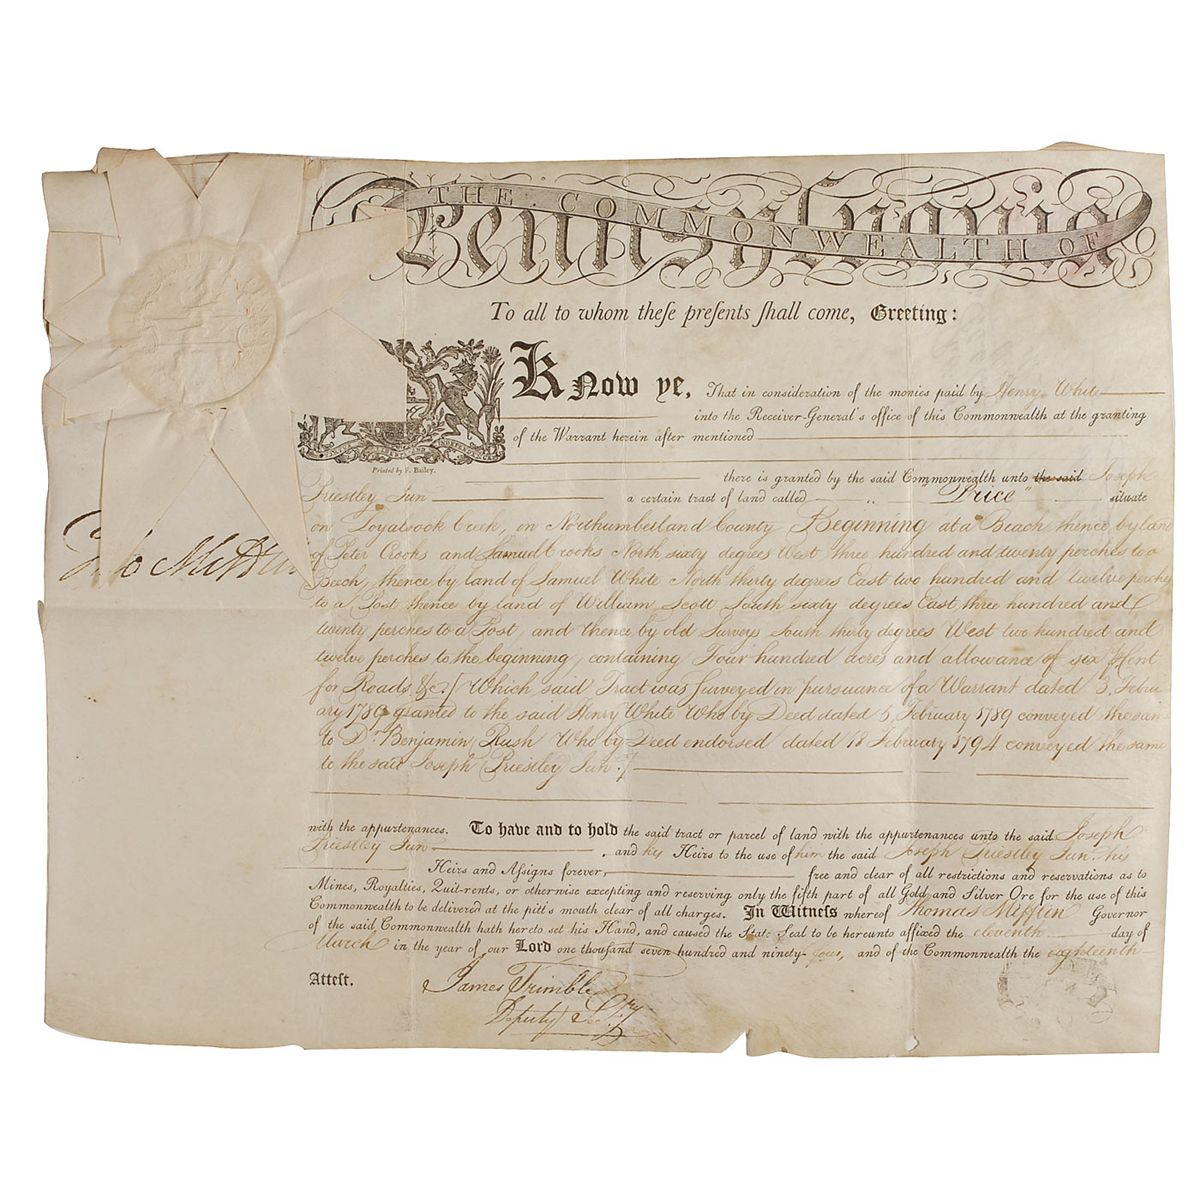 THE COMMONWEALTH OF
Pennsylvania
To all to whom theſe preſents ſhall come, Greeting:
Know ye, That in consideration of the monies paid by Henry White
into the Receiver-General's office of this Commonwealth at the granting
of the Warrant herein after mentioned
Printed by F. Bailey.
there is granted by the said Commonwealth unto the said Joseph
Priestley Jun a certain tract of land called " Price " situate
on Loyalsock Creek, in Northumberland County Beginning at a Beach thence by land
of Peter Crooks and Samuel Crooks North sixty degrees West three hundred and twenty perches to a
Beach, thence by land of Samuel White North thirty degrees East two hundred and twelve perches
to a Post thence by land of William Scott South sixty degrees East three hundred and
twenty perches to a Post, and thence by old Surveys South thirty degrees West two hundred and
twelve perches to the beginning, containing Four hundred acres and allowance of six Cent
for Roads &c. [Which said Tract was Surveyed in pursuance of a Warrant dated 3, Febru
ary 1789 granted to the said Henry White Who by Deed dated 5, February 1789 conveyed the same
to Dr Benjamin Rush Who by Deed endorsed dated 18 February 1794 conveyed the same
to the said Joseph Priestley Junr]
with the appurtenances. To have and to hold the said tract or parcel of land with the appurtenances unto the said Joseph
Priestley Jun and his Heirs to the use of him the said Joseph Priestley Junr his
Heirs and Aſsigns forever, free and clear of all restrictions and reservations as to
Mines, Royalties, Quit-rents, or otherwise excepting and reserving only the fifth part of all Gold and Silver Ore for the use of this
Commonwealth to be delivered at the pitt's mouth clear of all charges. In Witneſs whereof Thomas Mifflin Governor
of the said Commonwealth hath hereto set his Hand, and caused the State Seal to be hereunto affixed the eleventh day of
March in the year of our Lord one thousand seven hundred and ninety-four, and of the Commonwealth the eighteenth
Atteſt.
James Trimble
Deputy Secry